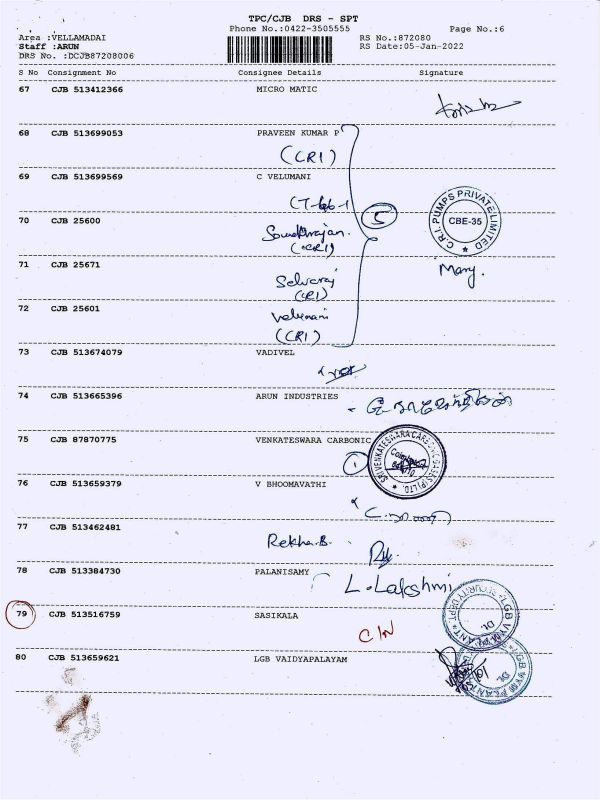 TPC/CJB DRS - SPT
Phone No.:0422-3505555
Page No.:6
Area :VELLAMADAI
RS No.:872080
Staff :ARUN
RS Date:05-Jan-2022
DRS No. :DCJB87208006
S No Consignment No Consignee Details Signature
67 CJB 513412366 MICRO MATIC
68 CJB 513699053 PRAVEEN KUMAR P
(CRI)
69 CJB 513699569 C VELUMANI
5
C.R.I. PUMPS PRIVATE LIMITED
CBE-35
70 CJB 25600
(CRI)
Mary.
71 CJB 25671
Selvaraj
(CRI)
72 CJB 25601
Velumani
(CRI)
73 CJB 513674079 VADIVEL
74 CJB 513665396 ARUN INDUSTRIES
75 CJB 87870775 VENKATESWARA CARBONIC
1
SRI VENKATESWARA CARBONIC GASES (P) LTD.
76 CJB 513659379 V BHOOMAVATHI
77 CJB 513462481
Rekha.B.
78 CJB 513384730 PALANISAMY
L. Lakshmi
79 CJB 513516759 SASIKALA
C/N
LGB VYM PLANT SECURITY DEPT.
80 CJB 513659621 LGB VAIDYAPALAYAM
LGB VYM PLANT